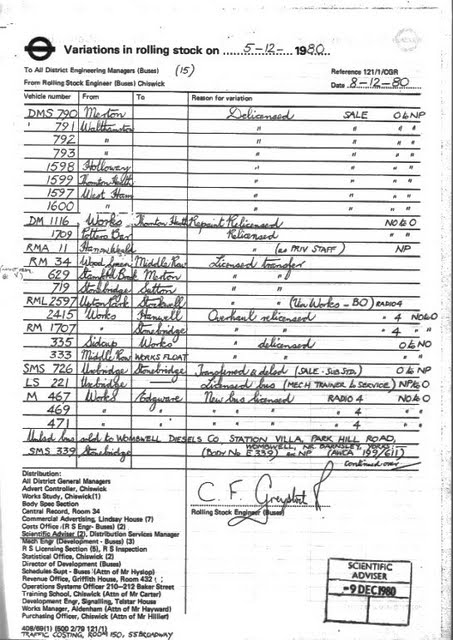 Variations in rolling stock on 5-12- 1980
To All District Engineering Managers (Buses) (15)
Reference 121/1/CGR
From Rolling Stock Engineer (Buses) Chiswick
Date 8-12-80
Vehicle number From To Reason for variation
DMS 790 Merton Delicensed SALE O to NP
" 791 Walthamstow " " " "
792 " " " " "
793 " " " " "
1598 Holloway " " " "
1599 Thornton Heath " " " "
1597 West Ham " " " "
1600 " " " " "
DM 1116 Works Thornton Heath Repaint Relicensed N to O
1709 Potters Bar Relicensed " "
RMA 11 " (as PRIV STAFF) NP
RM 34 Wood Green Middle Row Licensed transfer
629 Stamford Brook Merton "
719 Stonebridge Sutton "
RML 2597 Upton Park Stockwell " (Un Works - BO) RADIO 4
2415 Works Hanwell Overhaul relicensed " 4 N to O
RM 1707 " Stonebridge " " 4 "
335 Sidcup Works " delicensed O to N
333 Middle Row WORKS FLOAT " "
SMS 726 Uxbridge Stonebridge Transferred & deled (SALE - SUB STA) O to NP
LS 221 Uxbridge — Licensed bus (MECH TRAINER to SERVICE) NP to O
M 467 Works Edgware New bus licensed RADIO 4 N to O
469 " " " " " 4 "
471 " " " " " 4 "
Unlsd bus sold to WOMBWELL DIESELS CO. STATION VILLA, PARK HILL ROAD,
WOMBWELL, NR. BARNSLEY, YORKS.
SMS 339 Stonebridge (BODY No E 339) as NP (AWCA 199/611)
continued over
Distribution:
All District General Managers
Advert Controller, Chiswick
Works Study, Chiswick(1)
Body Spec Section
Central Record, Room 34
Commercial Advertising, Lindsay House (7)
Costs Office (R S Engr- Buses) (2)
Scientific Adviser (2), Distribution Services Manager
Mech Engr (Development - Buses) (3)
R S Licensing Section (5), R S Inspection
Statistical Office, Chiswick (2)
Director of Development (Buses)
Schedules Supt - Buses (Attn of Mr Hyslop)
Revenue Office, Griffith House, Room 432
Operations Systems Officer 210-212 Baker Street
Training School, Chiswick (Attn of Mr Carter)
Development Engr, Signalling, Telstar House
Works Manager, Aldenham (Attn of Mr Hayward)
Purchasing Officer, Chiswick (Attn of Mr Hillier)
408/69(1) (500 2/79 121/1)
TRAFFIC COSTING, ROOM 150, 55 BROADWAY
C. F. Greystort
Rolling Stock Engineer (Buses)
SCIENTIFIC
ADVISER
-9 DEC 1980